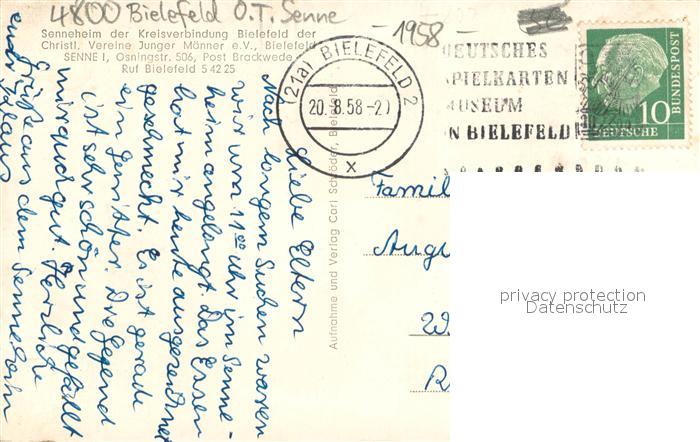 4800 Bielefeld O.T. Senne
-1958-
Senneheim der Kreisverbindung Bielefeld der
Christl. Vereine Junger Männer e.V., Bielefeld
SENNE I, Osningstr. 506, Post Brackwede
Ruf Bielefeld 5 42 25
(21a) BIELEFELD 2
20.8.58-2
x
DEUTSCHES
SPIELKARTEN
MUSEUM
IN BIELEFELD
10
DEUTSCHE
BUNDESPOST
Liebe Eltern
Nach langem Suchen waren
wir um 11⁰⁰ Uhr im Senne-
heim angelangt. Das Essen
hat mir heute ausgezeichnet
geschmeckt. Es ist gerade
ein Gewitter. Die Gegend
ist sehr schön und gefällt
mir auch gut. Herzliche
Grüße aus dem Senneheim
euer Klaus
Aufnahme und Verlag Carl Schröder, Bielefeld
Famil
Augu
W
R
privacy protection
Datenschutz